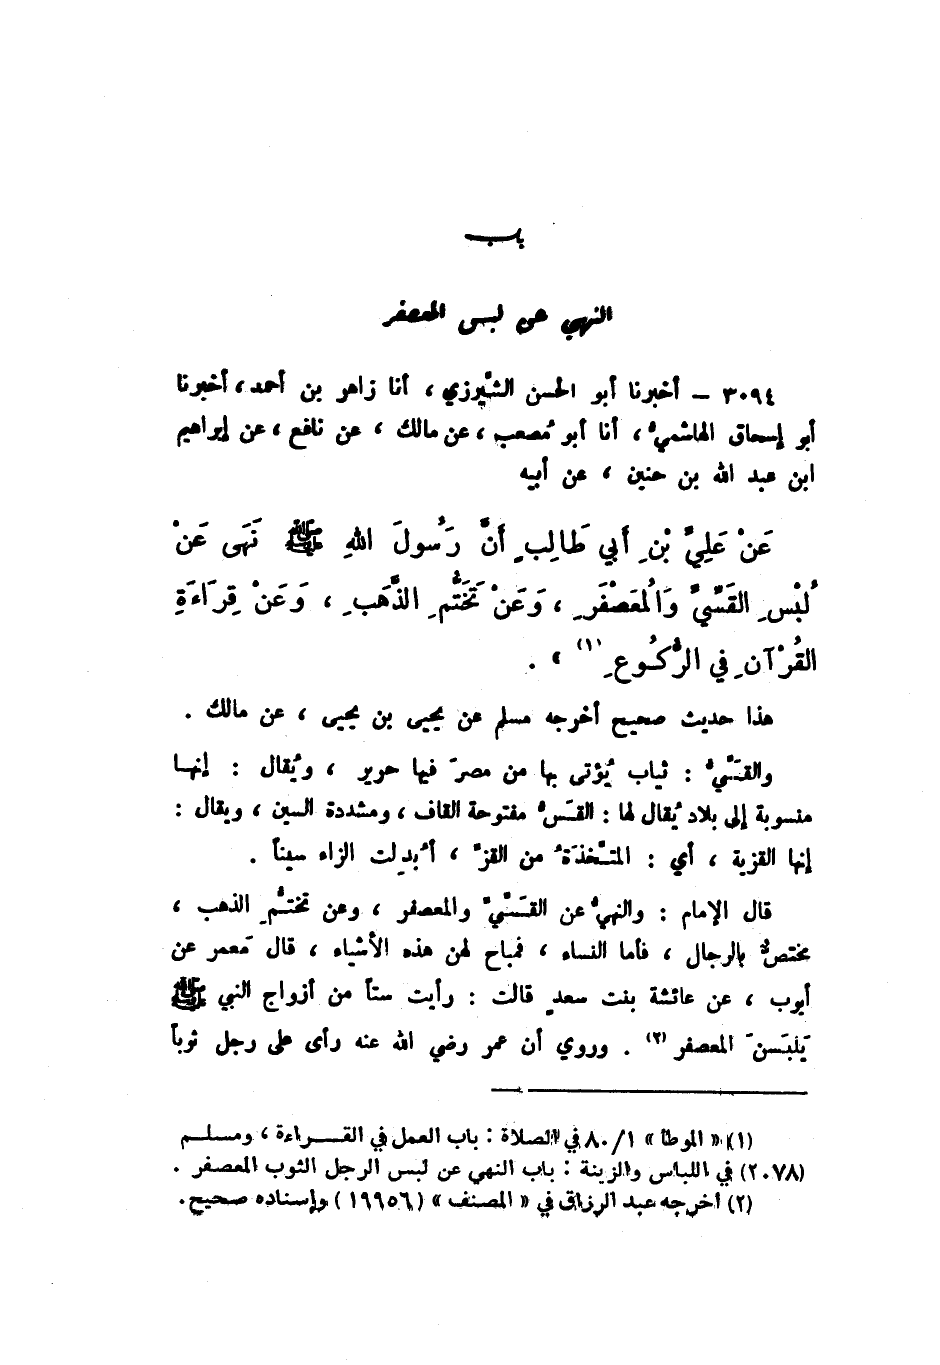 باب
النهي عن لبس المعصفر
٣٠٩٤ – أخبرنا أبو الحسن الشِّيرزي ، أنا زاهر بن أحمد ، أخبرنا
أبو إسحاق الهاشميُّ ، أنا أبو مُصعب ، عن مالك ، عن نافع ، عن إبراهيم
ابن عبد الله بن حنين ، عن أبيه
عَنْ عَلِيِّ بْنِ أَبي طَالِبٍ أَنَّ رَسُولَ اللهِ ﷺ نَهَى عَنْ
لُبْسِ القَسِّيِّ وَالمُعَصْفَرِ ، وَعَنْ تَخَتُّمِ الذَّهَبِ ، وَعَنْ قِرَاءَةِ
القُرْآنِ في الرُّكُوعِ (١) » .
هذا حديث صحيح أخرجه مسلم عن يحيى بن يحيى ، عن مالك .
والقَسِّيُّ : ثياب يُؤتى بها من مصرَ فيها حرير ، ويُقال : إنهـا
منسوبة إلى بلاد يُقال لها : القَسُّ مفتوحة القاف ، ومشددة السين ، ويقال :
إنها القزية ، أي : المتَّخذَةُ من القزِّ ، أُبدِلت الزاء سيناً .
قال الإمام : والنهيُ عن القَسِّيِّ والمعصفر ، وعن تختُّمِ الذهب ،
مختصٌّ بالرجال ، فأما النساء ، فمباح لهن هذه الأشياء ، قال مَعمر عن
أيوب ، عن عائشة بنت سعدٍ قالت : رأيت ستاً من أزواج النبي ﷺ
يَلبَسنَ المعصفر (٢) . وروي أن عمر رضي الله عنه رأى على رجل ثوباً
(١) « الموطأ » ٨٠/١ في الصلاة : باب العمل في القـــراءة ، ومسلـم
(٢٠٧٨) في اللباس والزينة : باب النهي عن لبس الرجل الثوب المعصفر .
(٢) أخرجه عبد الرزاق في « المصنف » (١٩٩٥٦) وإسناده صحيح .